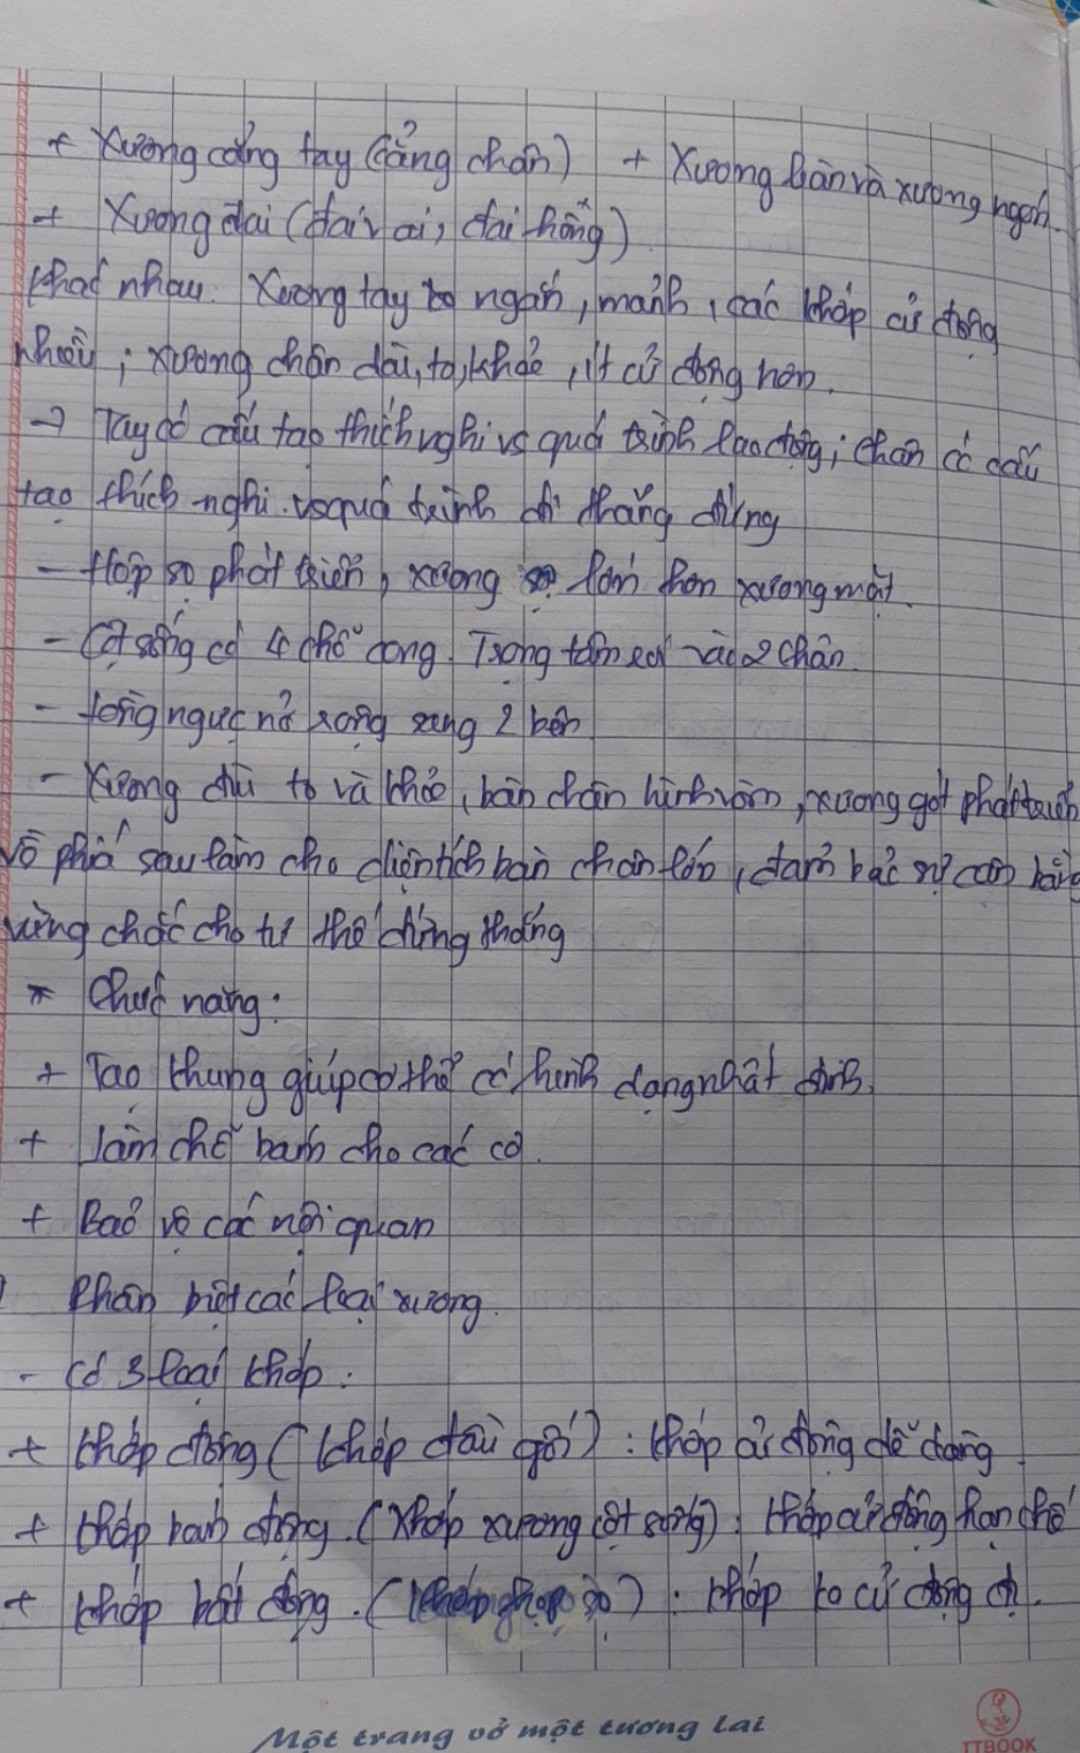 + Xương cẳng tay (cẳng chân) + Xương bàn và xương ngón.
+ Xương đai (đai vai, đai hông)
Khác nhau: Xương tay ngắn, mảnh, các khớp cử động
nhiều; xương chân dài, to, khỏe, ít cử động hơn.
→ Tay có cấu tạo thích nghi vs quá trình lao động; chân có cấu
tạo thích nghi vs quá trình đi thẳng đứng
- Hộp sọ phát triển, xương sọ lớn hơn xương mặt.
- Cột sống có 4 chỗ cong. Trọng tâm rơi vào 2 chân.
- lồng ngực nở rộng sang 2 bên
- Xương đùi to và khỏe, bàn chân hình vòm, xương gót phát triển
về phía sau làm cho diện tích bàn chân lớn, đảm bảo sự cân bằng
vững chắc cho tư thế đứng thẳng
* Chức năng:
+ Tạo khung giúp cơ thể có hình dạng nhất định.
+ làm chỗ bám cho các cơ.
+ Bảo vệ các nội quan
Phân biệt các loại xương.
- Có 3 loại khớp:
+ khớp động (khớp đầu gối): khớp cử động dễ dàng
+ khớp bán động. (Khớp xương cột sống): khớp cử động hạn chế
+ khớp bất động. (khớp hộp sọ): khớp ko cử động đc.
Một trang vở một tương lai
TTBOOK